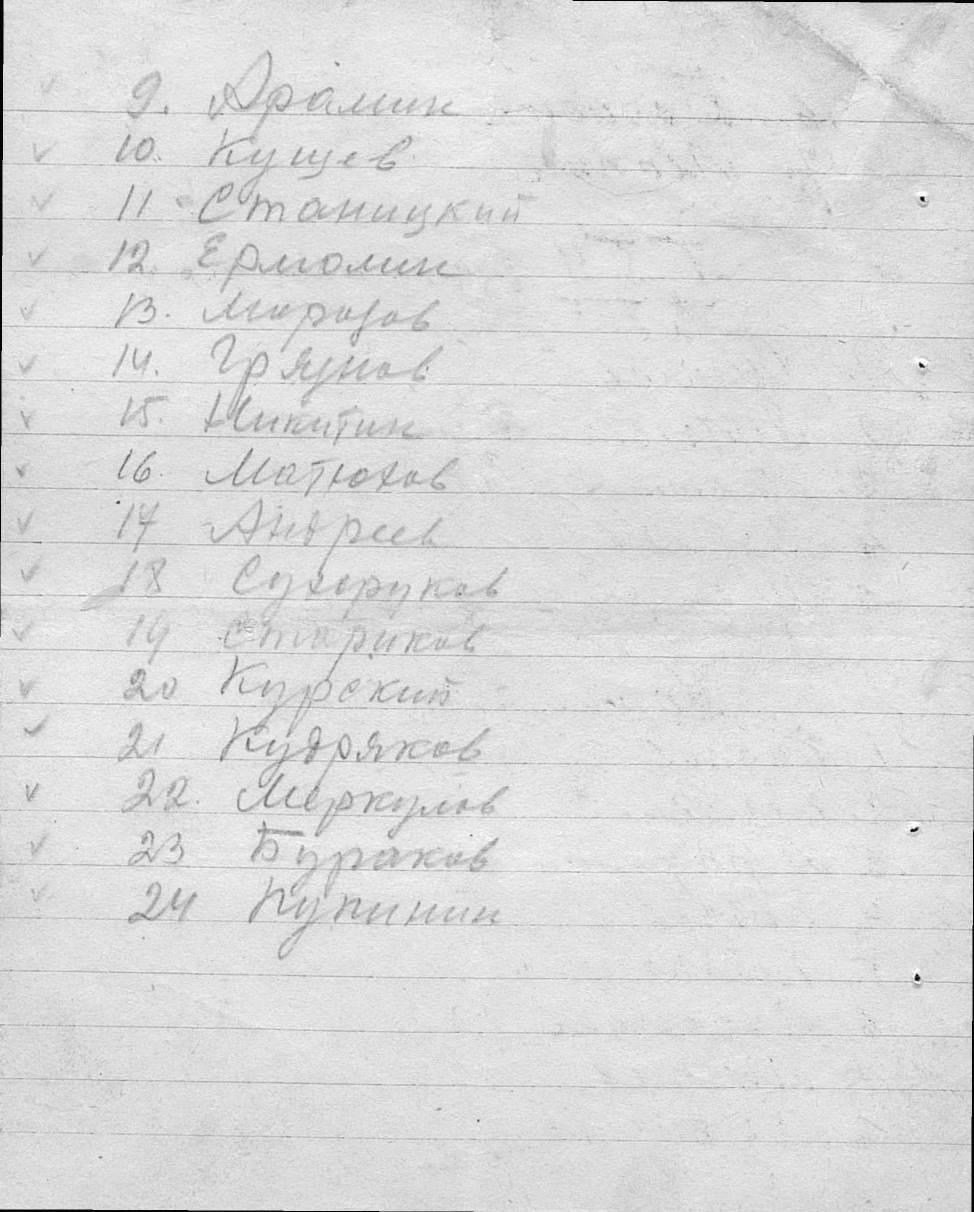 9. Арамин
10. Кущев
11 Станицкий
12. Ермолин
13. Морозов
14. Грязнов
15. Никитин
16. Матюхов
17 Андреев
18 Сухоруков
19 Стариков
20 Курский
21 Кудряков
22. Меркулов
23 Бураков
24 Купинин